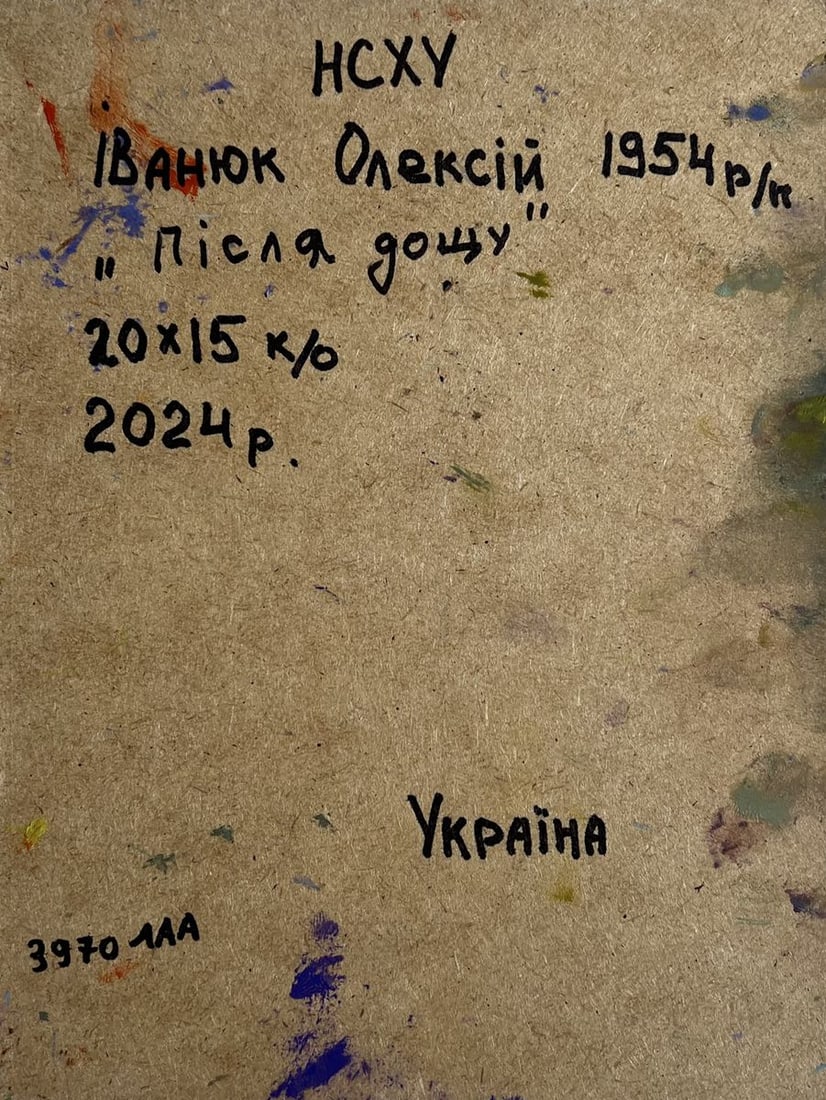 НСХУ
Іванюк Олексій 1954 р/н
„Після дощу"
20х15 к/о
2024 р.
Україна
3970 ЛАА